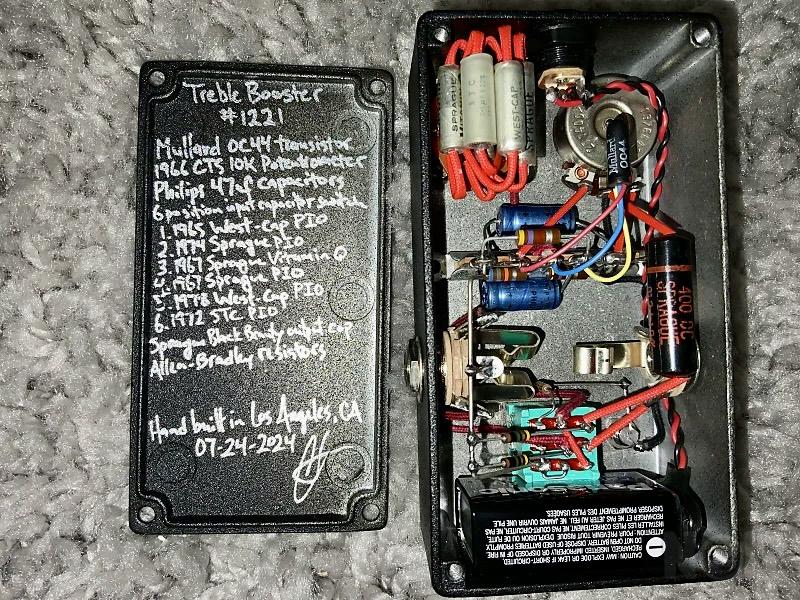 Treble Booster
#1221
Mullard OC44 transistor
1966 CTS 10K Potentiometer
Philips 47uf Capacitors
6 position input capacitor switch
1. 1965 West-Cap PIO
2. 1974 Sprague PIO
3. 1967 Sprague Vitamin Q
4. 1967 Sprague PIO
5. 1978 West-Cap PIO
6. 1972 STC PIO
Sprague Black Beauty output cap
Allen-Bradley resistors
Hand built in Los Angeles, CA
07-24-2024
SPRAGUE
STC
WEST-CAP
SPRAGUE
Mullard
OC44
400 DC
SPRAGUE
ATTENTION: POUR PRÉVENIR FUITE OU EXPLOSION, INSTALLER LES PILES CORRECTEMENT, NE PAS
RECHARGER ET NE PAS JETER AU FEU. NE JAMAIS OUVRIR UNE PILE.
DISPOSER PROMPTEMENT DES PILES USAGÉES
CAUTION: MAY EXPLODE OR LEAK IF SHORT-CIRCUITED,
RECHARGED, INSERTED IMPROPERLY OR DISPOSED OF IN FIRE.
DO NOT OPEN BATTERY. DISPOSE OF USED BATTERIES PROMPTLY